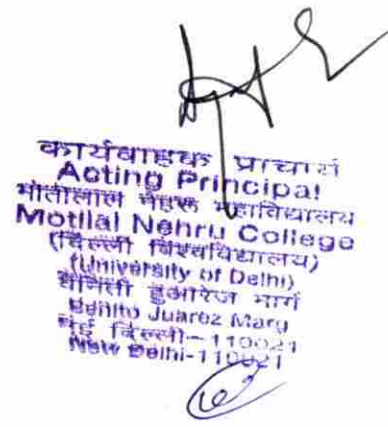 कार्यवाहक प्राचार्य
Acting Principal
मोतीलाल नेहरू महाविद्यालय
Motilal Nehru College
(दिल्ली विश्वविद्यालय)
(University of Delhi)
बेनितो हुआरेज मार्ग
Benito Juarez Marg
नई दिल्ली-110021
New Delhi-110021